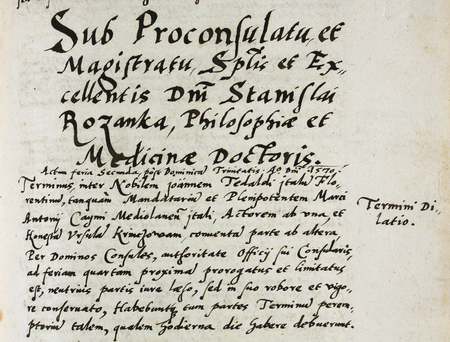 Sub Proconsulatu et
Magistratu, Sptlis et Ex-
cellentis Dni Stanislai
Rozanka, Philosophiæ et
Medicinæ Doctoris.
Actum feria Secunda, post Dominica Trinitatis. Ao. Dni. 1570.
Terminus inter Nobilem Joannem Tedaldi italu Flo-
rentinu, tanquam Mandatariu et Plenipotentem Marci
Antonij Caymi Mediolanen itali, Actorem ab una, et
Honesta Ursula conventa parte ab altera
Per Dominos Consules, authoritate Officij sui Consularis,
ad feriam quartam proxima prorogatus et limitatus
est, neutrius partis iure læso, sed in suo robore et vigo-
re conservato, Habebunt eum partes Terminu perem-
ptoriu talem, qualem hodierna die habere debuerunt.
Termini Di-
latio.